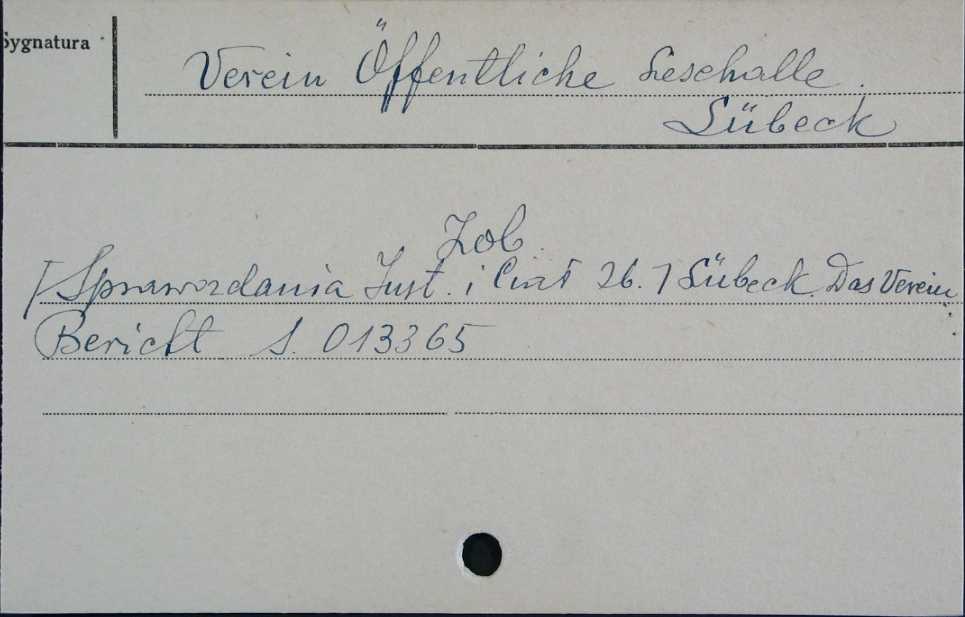 Sygnatura
Verein Öffentliche Lesehalle
Lübeck
Zob.
[Sprawozdania Inst. i 26.] Lübeck. Das Verein
Bericht S. 013365